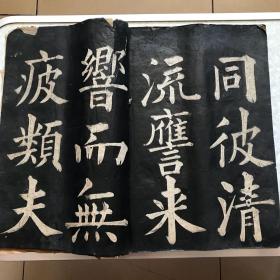 同彼清
流䧹言来
響而無
疲類夫